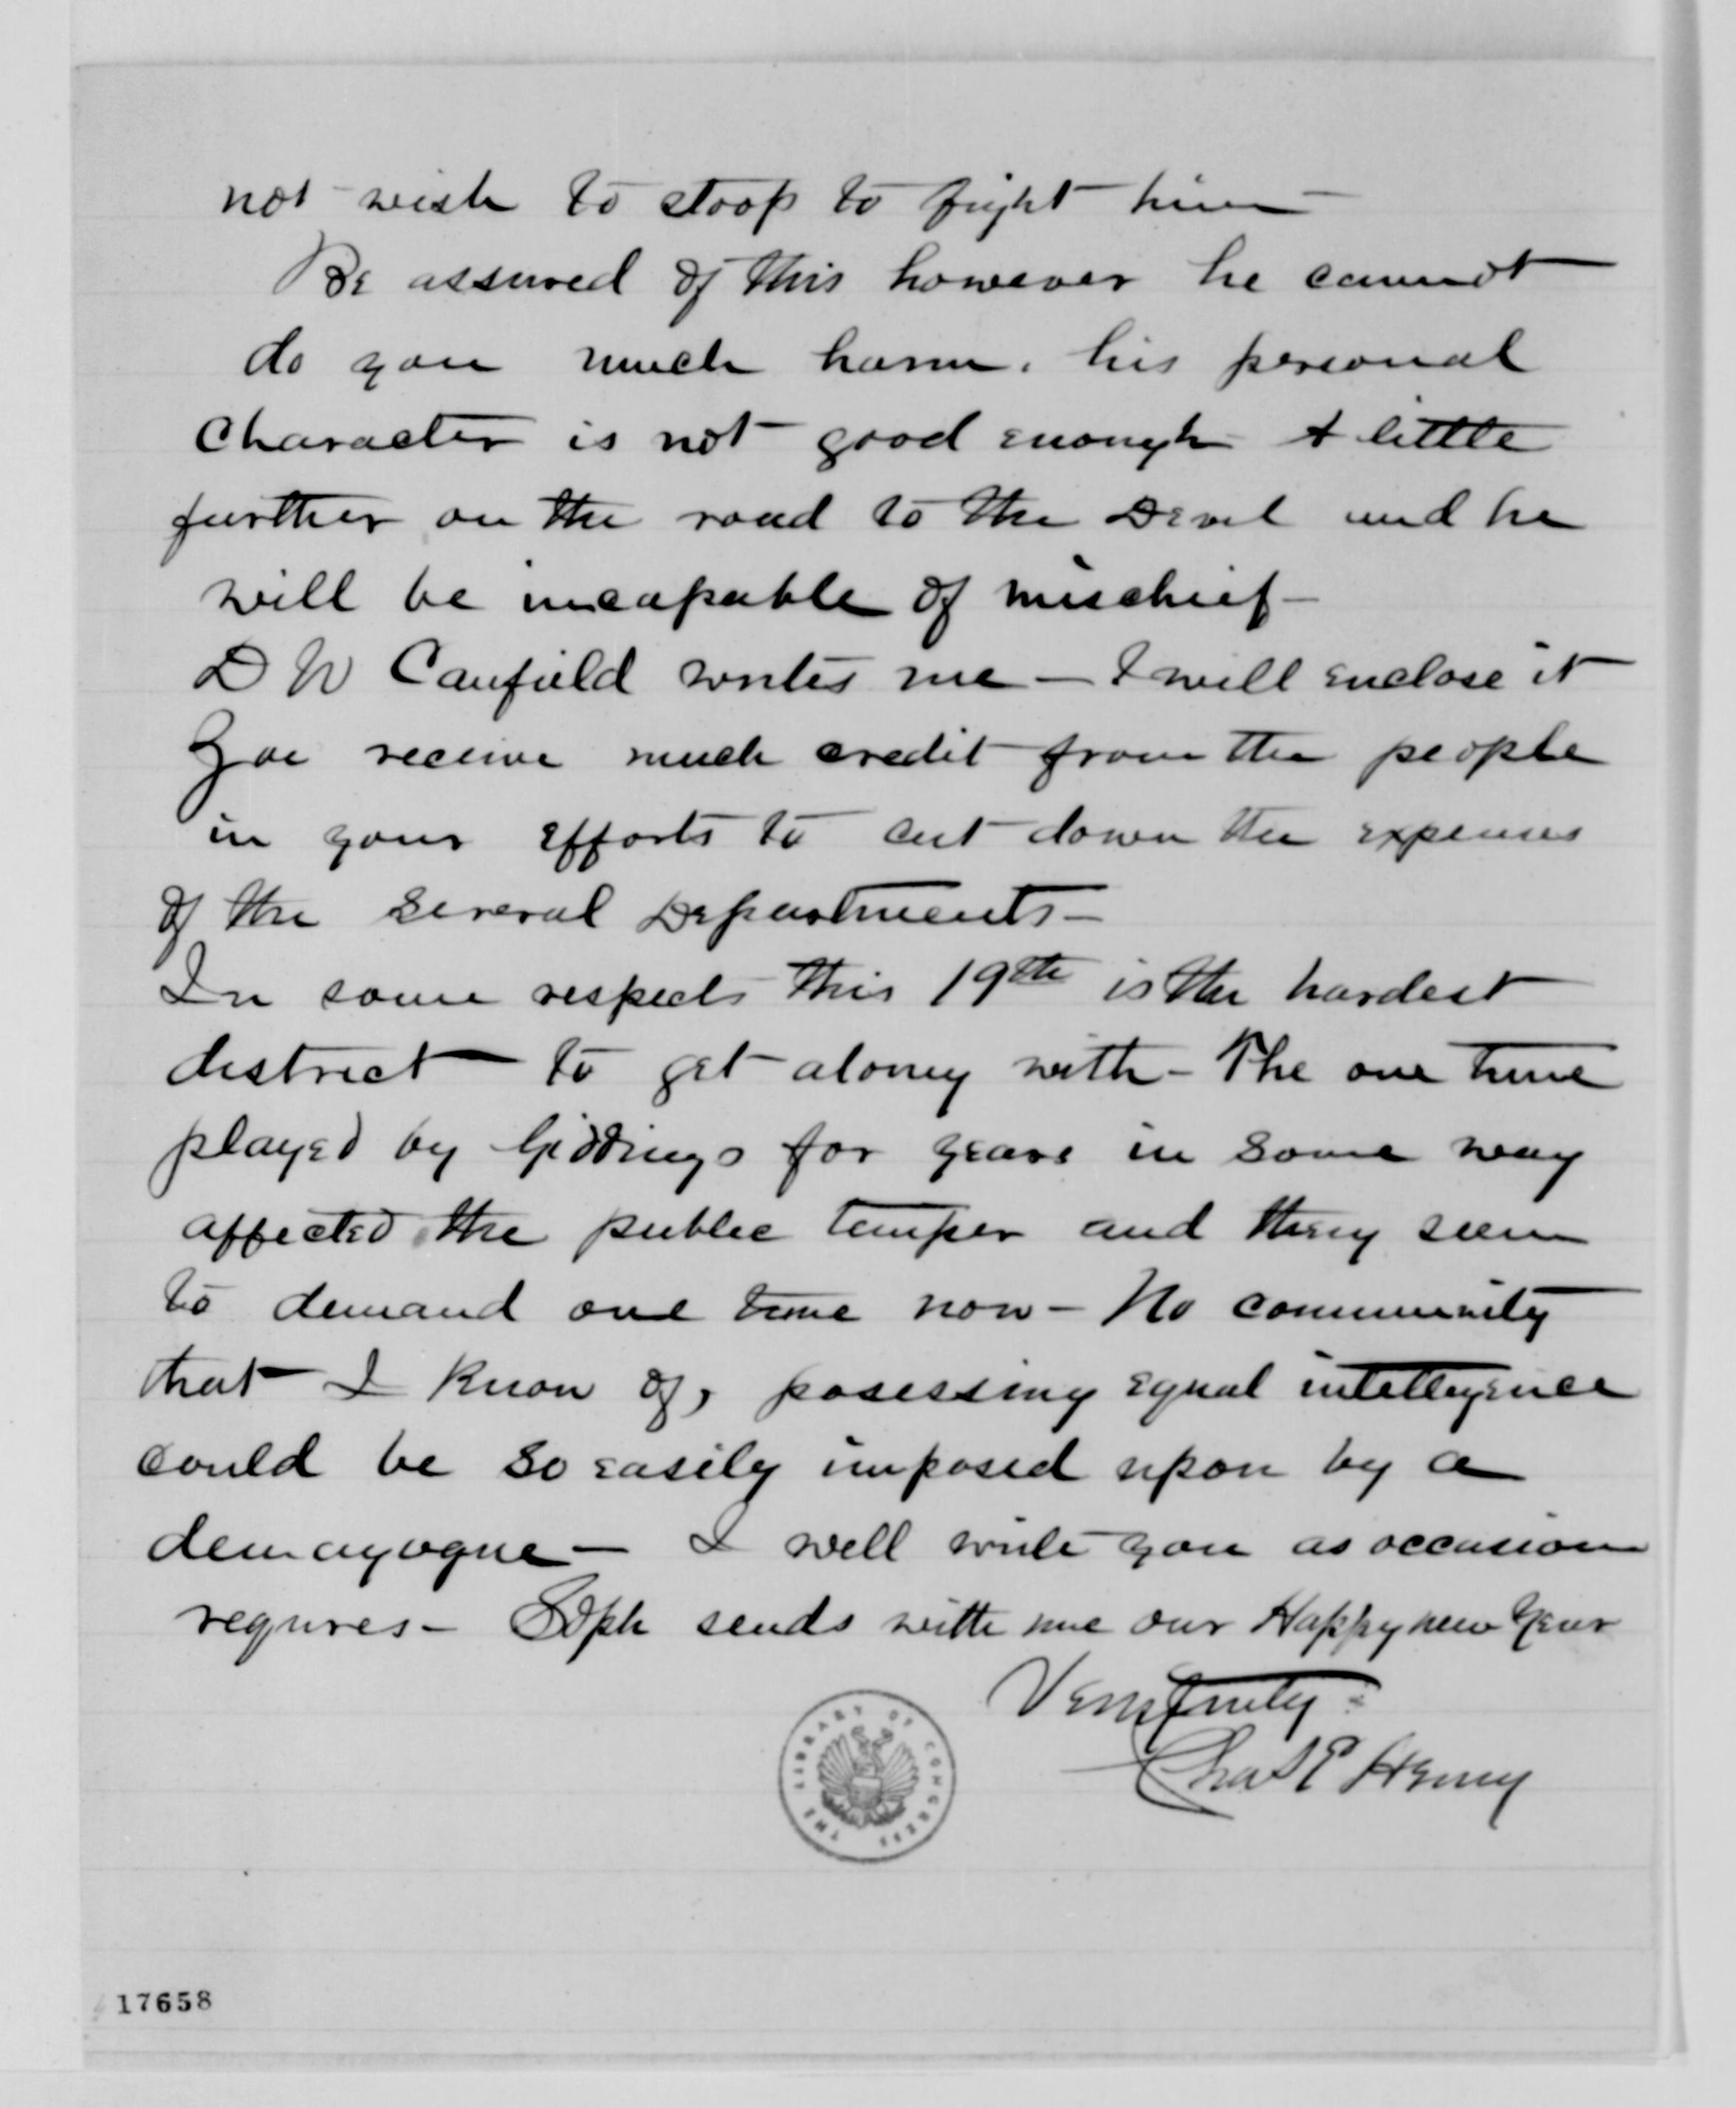 not wish to stoop to fight him –
Be assured of this however he cannot
do you much harm. his personal
character is not good enough A little
further on the road to the Devil and he
will be incapable of mischief –
D W Canfield writes me – I will enclose it
You receive much credit from the people
in your efforts to cut down the expenses
of the several Departments –
In some respects this 19th is the hardest
district to get along with – The one tune
played by Giddings for years in some way
affected the public temper and they seem
to demand one tune now – No community
that I know of, posessing equal intelligence
could be so easily imposed upon by a
demagogue – I will write you as occasion
requires – Soph sends with me our Happy new Year
Very truly
Chas E Henry
THE LIBRARY OF CONGRESS
17658